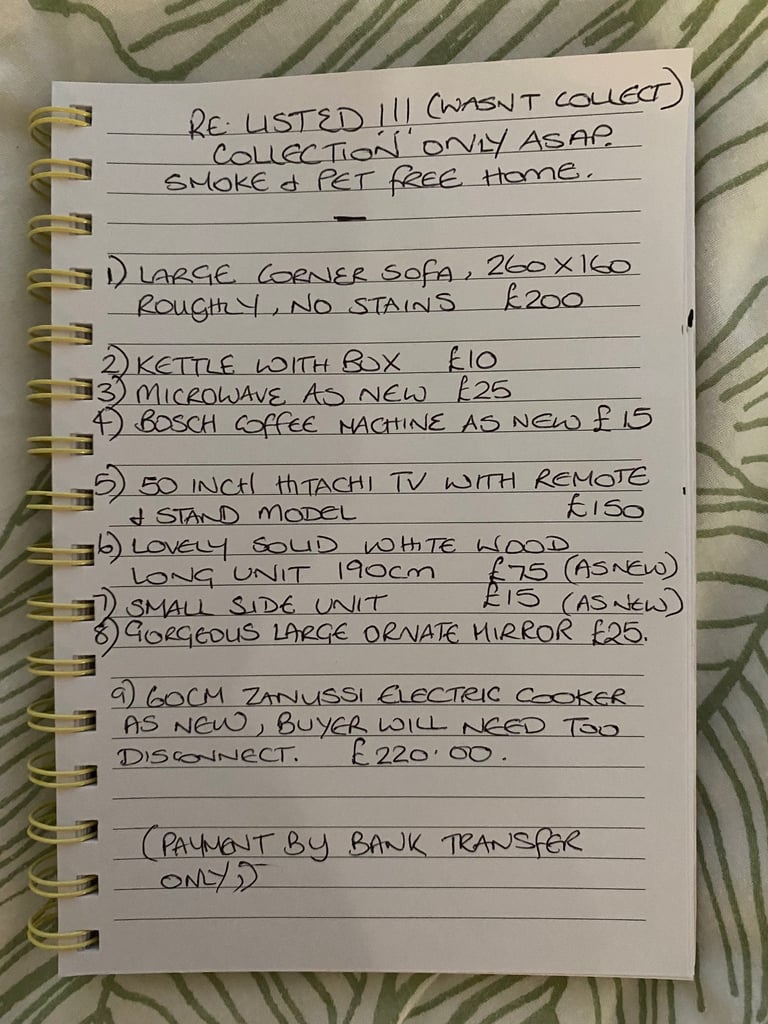 RE: LISTED !!! (WASNT COLLECT)
COLLECTION ONLY ASAP.
SMOKE & PET FREE HOME.
1) LARGE CORNER SOFA, 260 X 160
ROUGHLY, NO STAINS £200
2) KETTLE WITH BOX £10
3) MICROWAVE AS NEW £25
4) BOSCH COFFEE MACHINE AS NEW £15
5) 50 INCH HITACHI TV WITH REMOTE
& STAND MODEL £150
6) LOVELY SOLID WHITE WOOD
LONG UNIT 190cm £75 (AS NEW)
7) SMALL SIDE UNIT £15 (AS NEW)
8) GORGEOUS LARGE ORNATE MIRROR £25.
9) 60CM ZANUSSI ELECTRIC COOKER
AS NEW, BUYER WILL NEED TOO
DISCONNECT. £220.00.
(PAYMENT BY BANK TRANSFER
ONLY,)